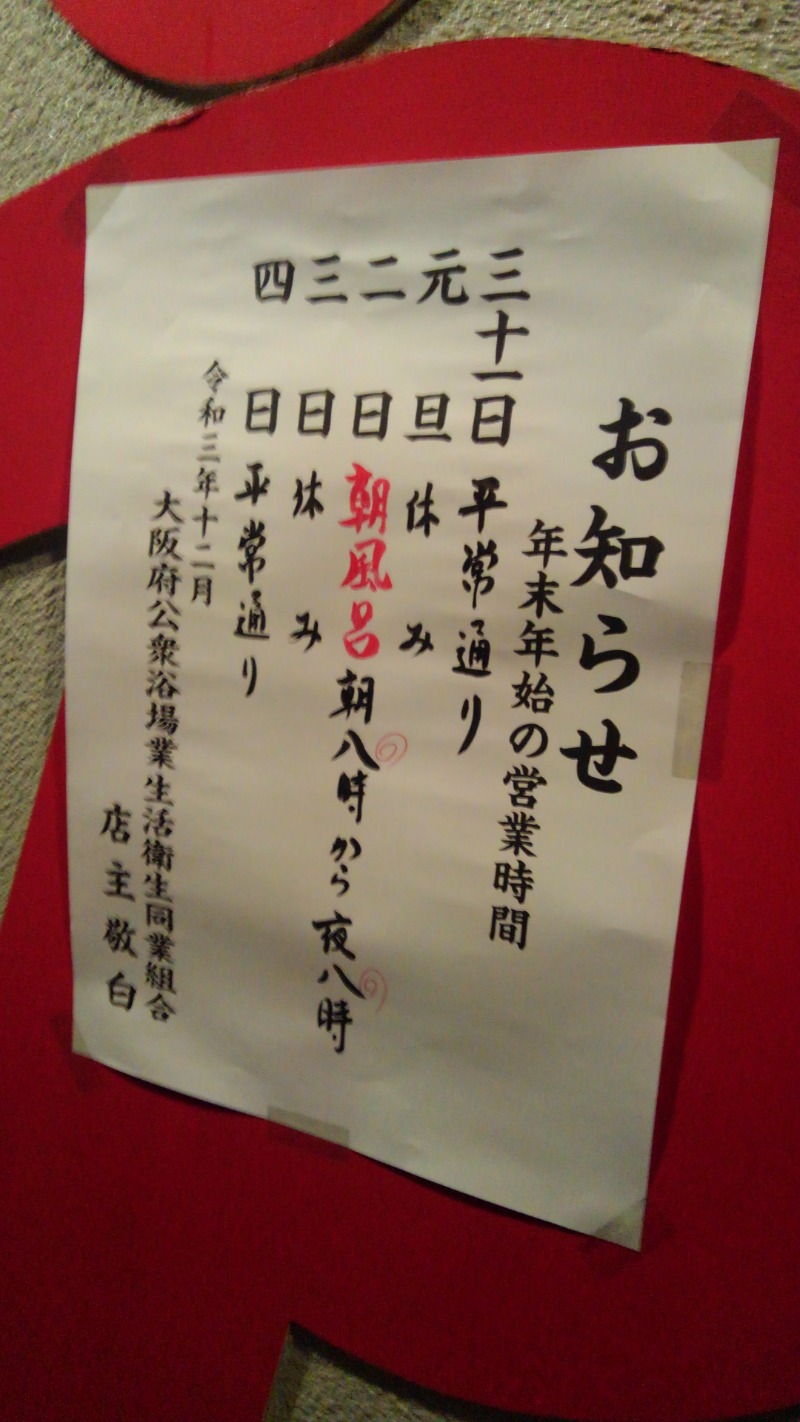 お知らせ
年末年始の営業時間
三十一日 平常通り
元旦 休み
二日 朝風呂 朝八時から夜八時
三日 休み
四日 平常通り
令和三年十二月
大阪府公衆浴場業生活衛生同業組合
店主敬白